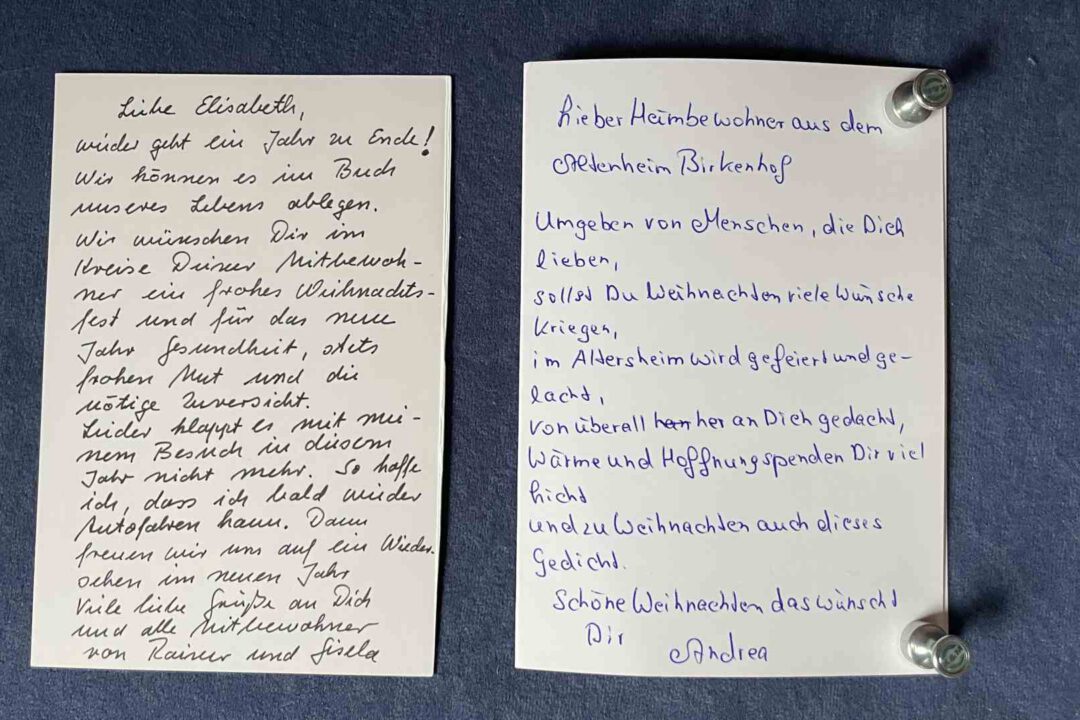 Liebe Elisabeth,
wieder geht ein Jahr zu Ende!
Wir können es im Buch
unseres Lebens ablegen.
Wir wünschen Dir im
Kreise Deiner Mitbewoh-
ner ein frohes Weihnachts-
fest und für das neue
Jahr Gesundheit, stets
frohen Mut und die
nötige Zuversicht.
Leider klappt es mit mei-
nem Besuch in diesem
Jahr nicht mehr. So hoffe
ich, dass ich bald wieder
Autofahren kann. Dann
freuen wir uns auf ein Wieder-
sehen im neuen Jahr
Viele liebe Grüße an Dich
und alle Mitbewohner
von Rainer und Gisela
Lieber Heimbewohner aus dem
Altenheim Birkenhof
Umgeben von Menschen, die Dich
lieben,
sollst Du Weihnachten viele Wünsche
kriegen,
im Altersheim wird gefeiert und ge-
lacht,
von überall her an Dich gedacht,
Wärme und Hoffnung spenden Dir viel
Licht
und zu Weihnachten auch dieses
Gedicht.
Schöne Weihnachten das wünscht
Dir
Andrea